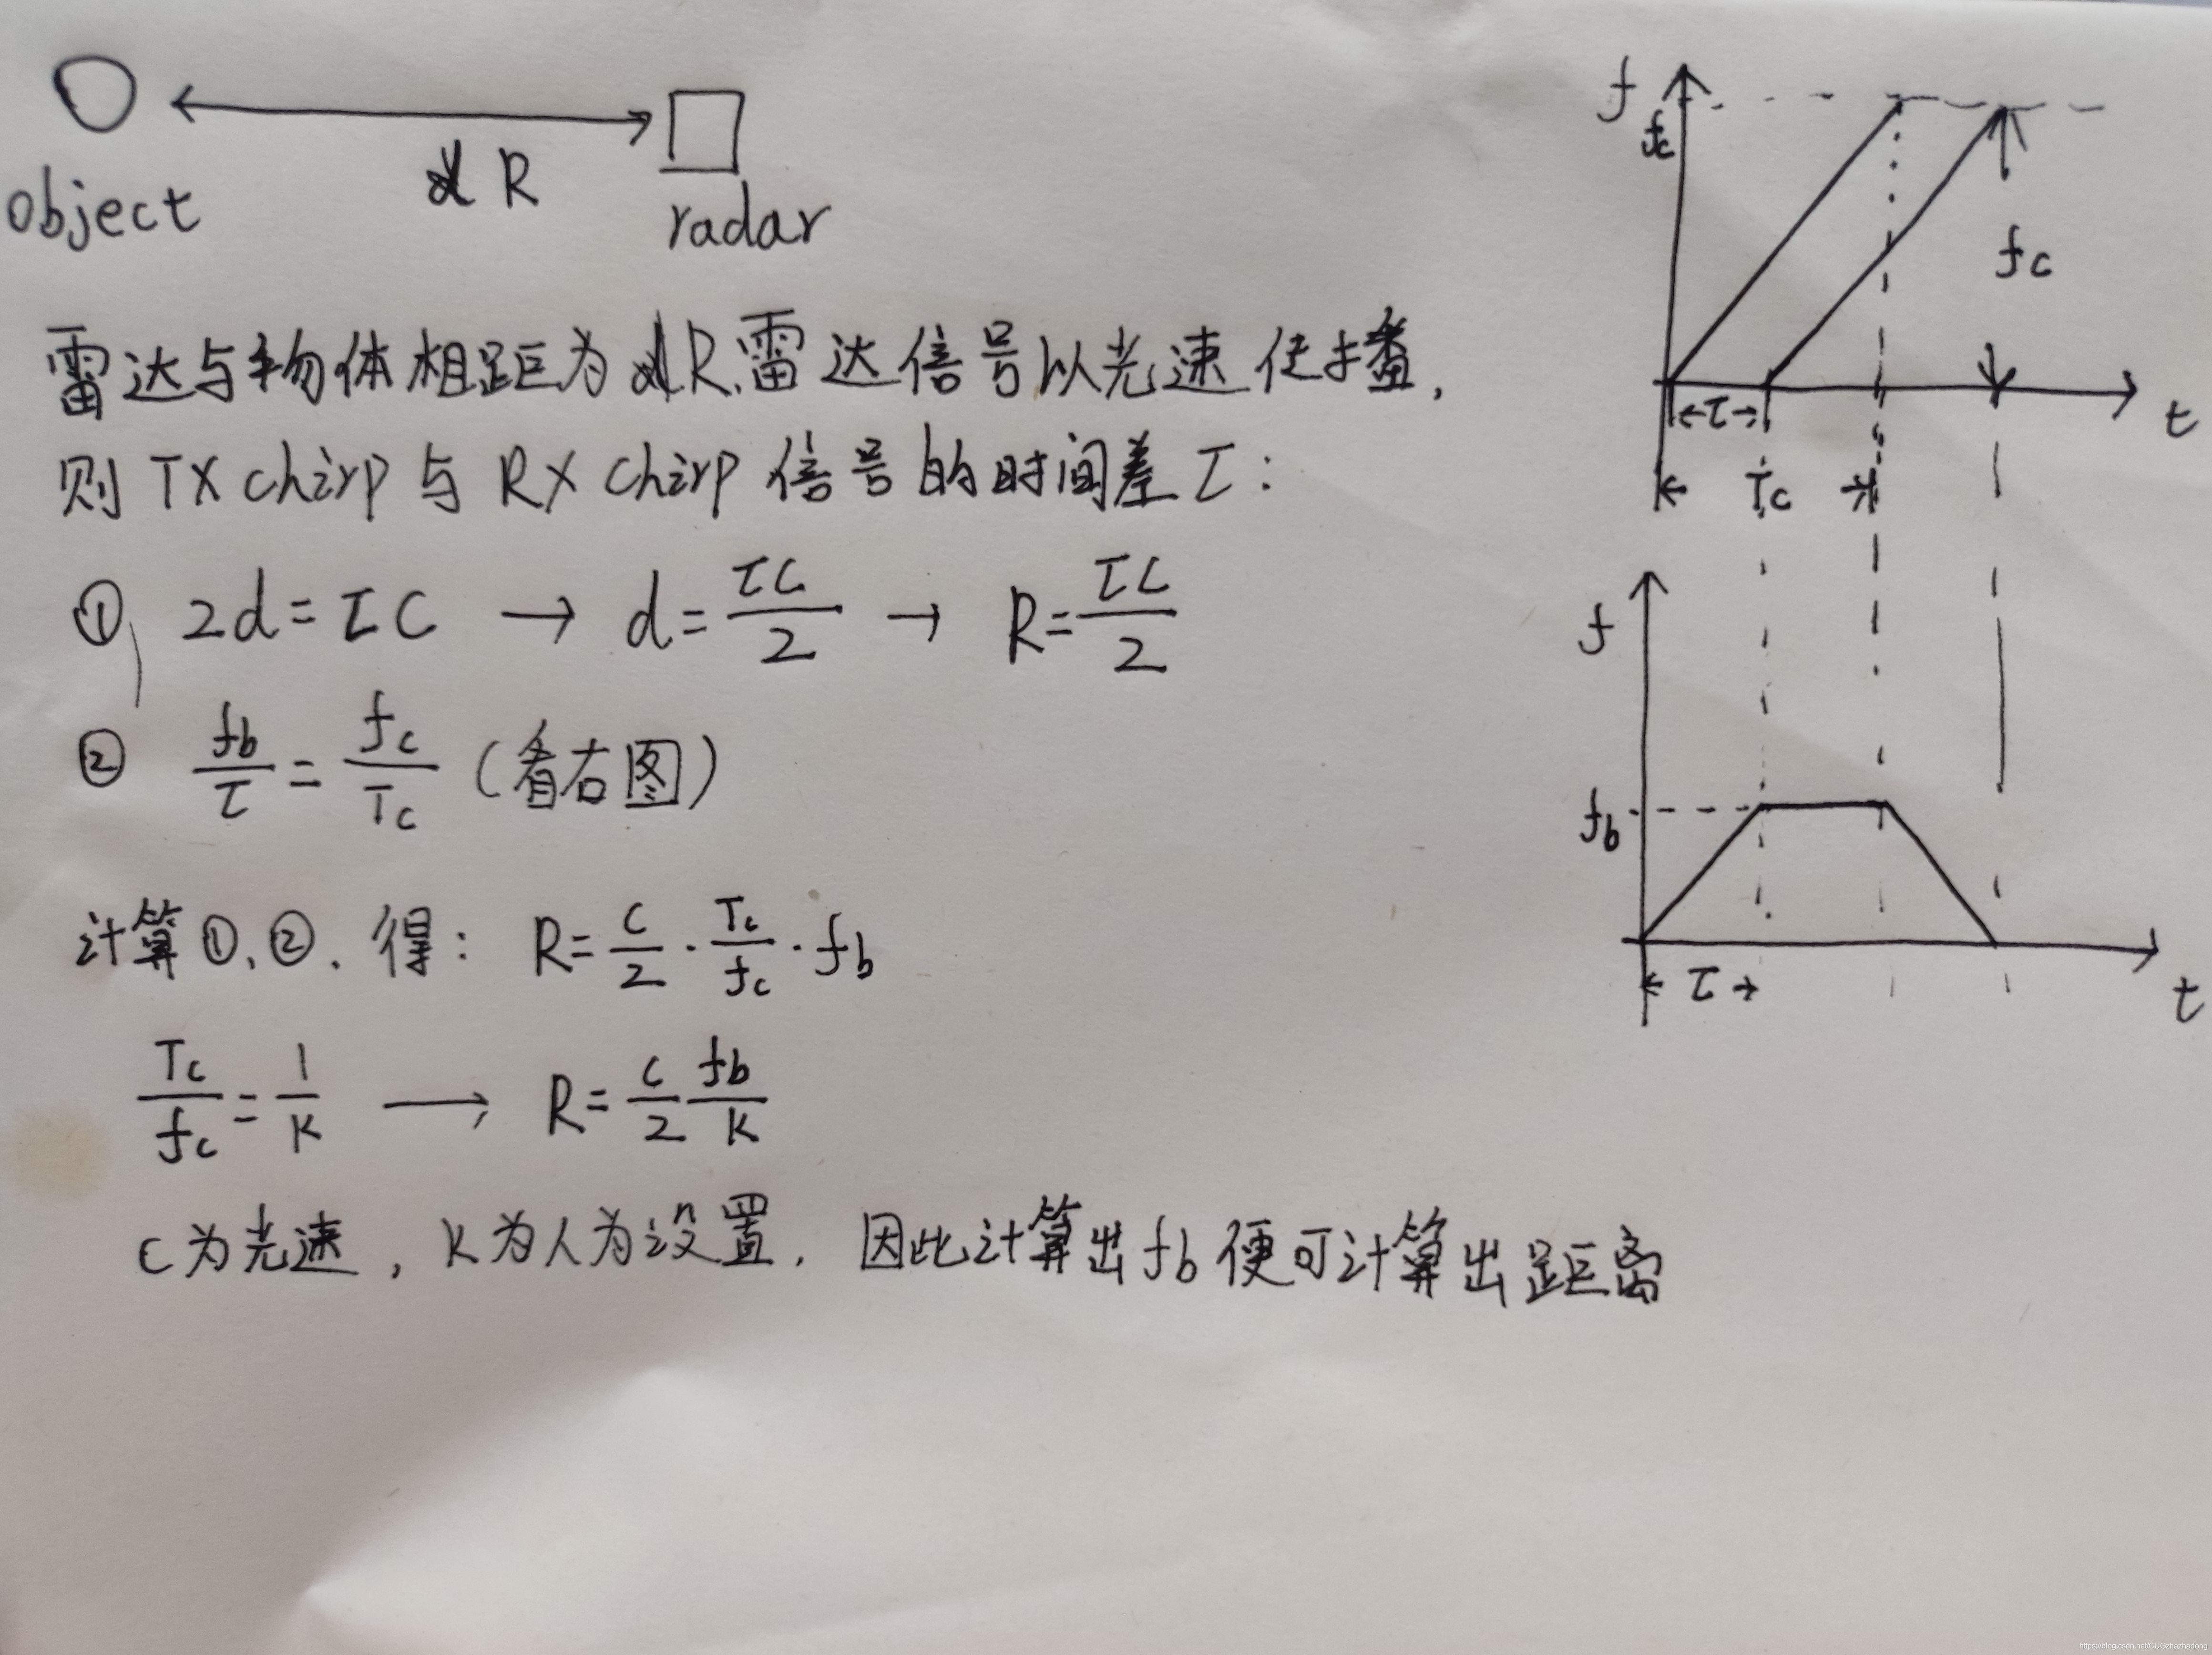 object
R
radar
雷达与物体相距为R,雷达信号以光速传播,
则TX chirp与RX chirp信号的时间差τ:
① 2d=τC → d=τC/2 → R=τC/2
② fb/τ=fc/Tc (看右图)
计算①、②.得: R=C/2·Tc/fc·fb
Tc/fc=1/K → R=C/2 fb/K
C为光速,K为人为设置.因此计算出fb便可计算出距离
f
fc
fc
←τ→
t
← Tc →
f
fb
← τ →
t
https://blog.csdn.net/CUGzhazhadong